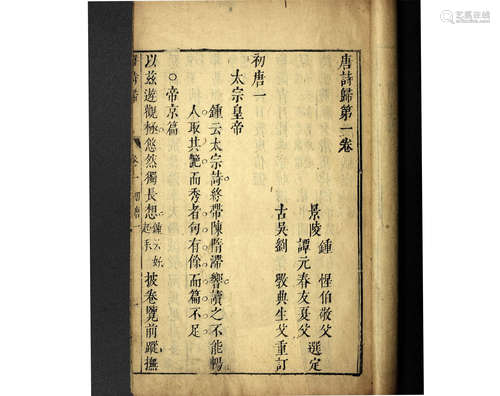 唐詩歸第一卷
景陵 鍾 惺伯敬父
譚元春友夏父 選定
古吳劉 斅典生父重訂
初唐一
太宗皇帝
鍾云太宗詩終帶陳隋滯響讀之不能暢
人取其艷而秀者句有餘而篇不足
○帝京篇
以茲遊觀極悠然獨長想 鍾云好起手 披卷覽前蹤撫
卷一 初唐一